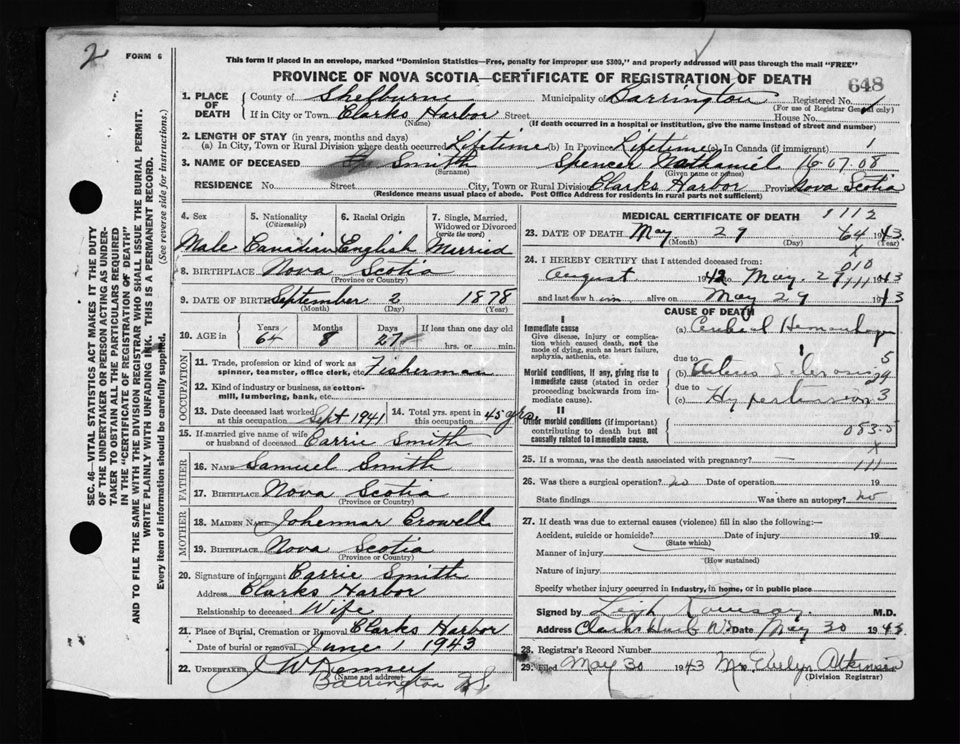 2
FORM 6
This form if placed in an envelope, marked "Dominion Statistics—Free, penalty for improper use $300," and properly addressed will pass through the mail "FREE"
PROVINCE OF NOVA SCOTIA—CERTIFICATE OF REGISTRATION OF DEATH
648
SEC. 46—VITAL STATISTICS ACT MAKES IT THE DUTY
OF THE UNDERTAKER OR PERSON ACTING AS UNDER-
TAKER TO OBTAIN ALL THE PARTICULARS REQUIRED
IN THE "CERTIFICATE OF REGISTRATION OF DEATH"
AND TO FILE THE SAME WITH THE DIVISION REGISTRAR WHO SHALL ISSUE THE BURIAL PERMIT.
WRITE PLAINLY WITH UNFADING INK. THIS IS A PERMANENT RECORD.
Every item of information should be carefully supplied. (See reverse side for instructions.)
1. PLACE OF DEATH
County of Shelburne Municipality of Barrington Registered No. 1
(For use of Registrar General only)
If in City or Town Clarks Harbor Street House No.
(Name) (If death occurred in a hospital or institution, give the name instead of street and number)
2. LENGTH OF STAY (in years, months and days)
(a) In City, Town or Rural Division where death occurred Lifetime (b) In Province Lifetime (c) In Canada (if immigrant) 1
3. NAME OF DECEASED Smith Spencer Nathaniel 16-07.08
(Surname) (Given name or names)
RESIDENCE No. Street City, Town or Rural Division Clarks Harbor Province Nova Scotia
(Residence means usual place of abode. Post Office Address for residents in rural parts not sufficient)
4. Sex Male
5. Nationality (Citizenship) Canadian
6. Racial Origin English
7. Single, Married, Widowed or Divorced (write the word) Married
8. BIRTHPLACE Nova Scotia
(Province or Country)
9. DATE OF BIRTH September 2 1878
(Month) (Day) (Year)
10. AGE in Years 64 Months 8 Days 27 If less than one day old
hrs. or min.
OCCUPATION
11. Trade, profession or kind of work as spinner, teamster, office clerk, etc. Fisherman
12. Kind of industry or business, as cotton-mill, lumbering, bank, etc.
13. Date deceased last worked at this occupation Sept 1941
14. Total yrs. spent in this occupation 45 yrs
15. If married give name of wife or husband of deceased Carrie Smith
FATHER
16. NAME Samuel Smith
17. BIRTHPLACE Nova Scotia
(Province or Country)
MOTHER
18. MAIDEN NAME Johennar Crowell
19. BIRTHPLACE Nova Scotia
(Province or Country)
20. Signature of informant Carrie Smith
Address Clarks Harbor
Relationship to deceased Wife
21. Place of Burial, Cremation or Removal Clarks Harbor
Date of burial or removal June 1 1943
22. UNDERTAKER J W Kenney
(Name and address)
Barrington N S
MEDICAL CERTIFICATE OF DEATH 1112
23. DATE OF DEATH May 29 64 1943
(Month) (Day) (Year)
24. I HEREBY CERTIFY that I attended deceased from: x 010
August 1942 to May 29 111 1943
and last saw h im alive on May 29 1943
CAUSE OF DEATH
I
Immediate cause
Give disease, injury or complication which caused death, not the mode of dying, such as heart failure, asphyxia, asthenia, etc.
(a) Cerebral Hemorrhage
due to 5
Morbid conditions, if any, giving rise to immediate cause (stated in order proceeding backwards from immediate cause).
(b) Arterio Sclerosis 24
due to
(c) Hypertension 3
II
Other morbid conditions (if important) contributing to death but not causally related to immediate cause.
083-5
x
25. If a woman, was the death associated with pregnancy? — 111
26. Was there a surgical operation? no Date of operation 19
State findings Was there an autopsy? no
27. If death was due to external causes (violence) fill in also the following:—
Accident, suicide or homicide? Date of injury 19
(State which)
Manner of injury
(How sustained)
Nature of injury
Specify whether injury occurred in industry, in home, or in public place
Signed by Leigh Ramsay. M.D.
Address Clarks Harb NS Date May 30 1943
28. Registrar's Record Number
29. Filed May 30 1943 Mrs Evelyn Atkinson
(Division Registrar)